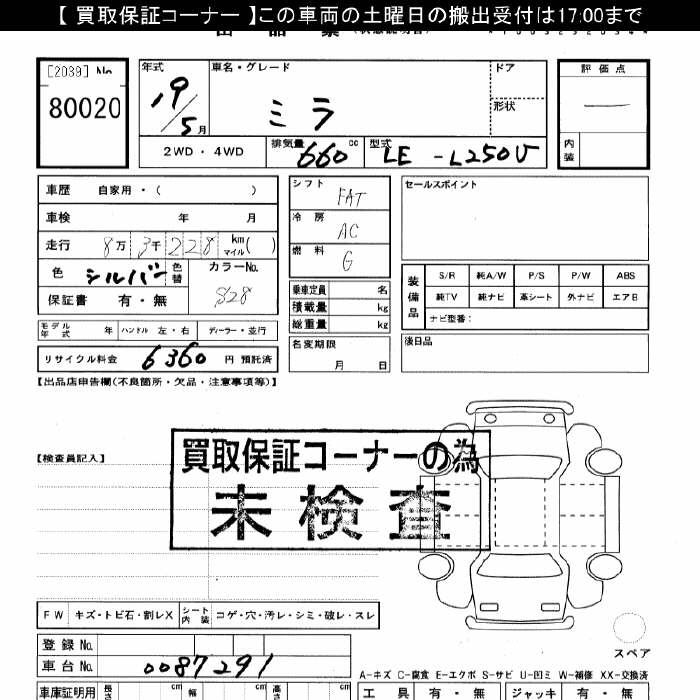 【 買取保証コーナー 】この車両の土曜日の搬出受付は17:00まで
[2039] No
80020
年式
19/5月
車名・グレード
ミラ
ドア
形状
2WD ・ 4WD
排気量 660 cc
型式 LE - L250V
評価点
—
内装
車歴 自家用・( )
車検 年 月
走行 8万 3千 228 km マイル( )
色 シルバー 色替 カラーNo. S28
保証書 有・無
シフト FAT
冷房 AC
燃料 G
乗車定員 名
積載量 kg
総重量 kg
名変期限 月 日
セールスポイント
装備品
S/R 純A/W P/S P/W ABS
純TV 純ナビ 革シート 外ナビ エアB
ナビ型番:
後日品
モデル年式 年 ハンドル 左・右 ディーラー・並行
リサイクル料金 6360 円 預託済
【出品店申告欄(不良箇所・欠品・注意事項等)】
【検査員記入】
買取保証コーナーの為
未検査
FW キズ・トビ石・割レX シート内装 コゲ・穴・汚レ・シミ・破レ・スレ
登録 No.
車台 No. 0087291
スペア
A-キズ C-腐食 E-エクボ S-サビ U-凹ミ W-補修 XX-交換済
車庫証明用 長さ cm 幅 cm 高さ cm
工具 有・無 ジャッキ 有・無